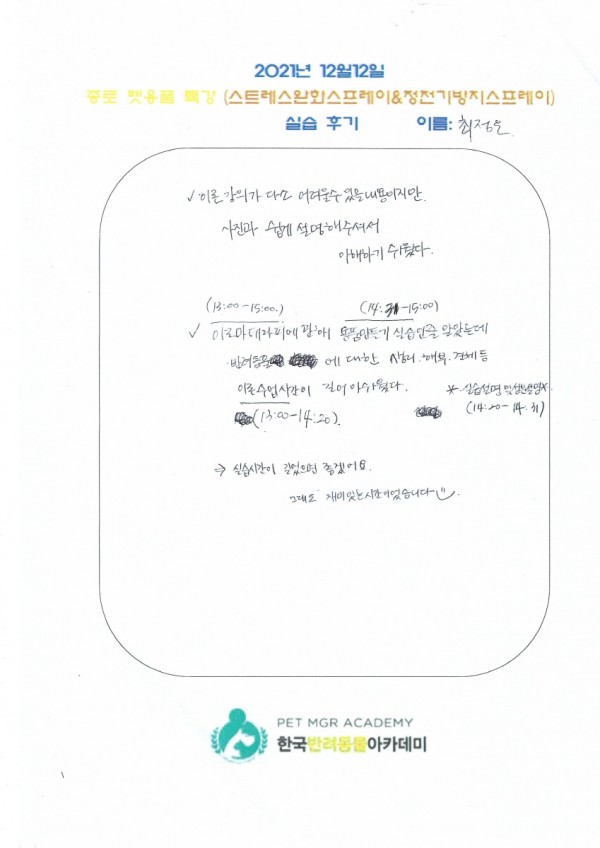 2021년 12월12일
종로 펫용품 특강 (스트레스완화스프레이&정전기방지스프레이)
실습 후기 이름: 최정은
✓ 이론 강의가 다소 어려울수 있을 내용이지만
사진과 쉽게 설명해주셔서
이해하기 쉬웠다.
(13:00-15:00.) (14:31-15:00)
✓ 아로마테라피에 관해 용품만들기 실습인줄 알았는데
반려동물 에 대한 생리. 해부. 견체 등
이론수업시간이 길어 아쉬웠다. * 실습설명 및
(13:00-14:20). (14:20-14:31)
⇒ 실습시간이 길었으면 좋겠어요.
그래도 재미있는 시간이었습니다
PET MGR ACADEMY
한국반려동물아카데미